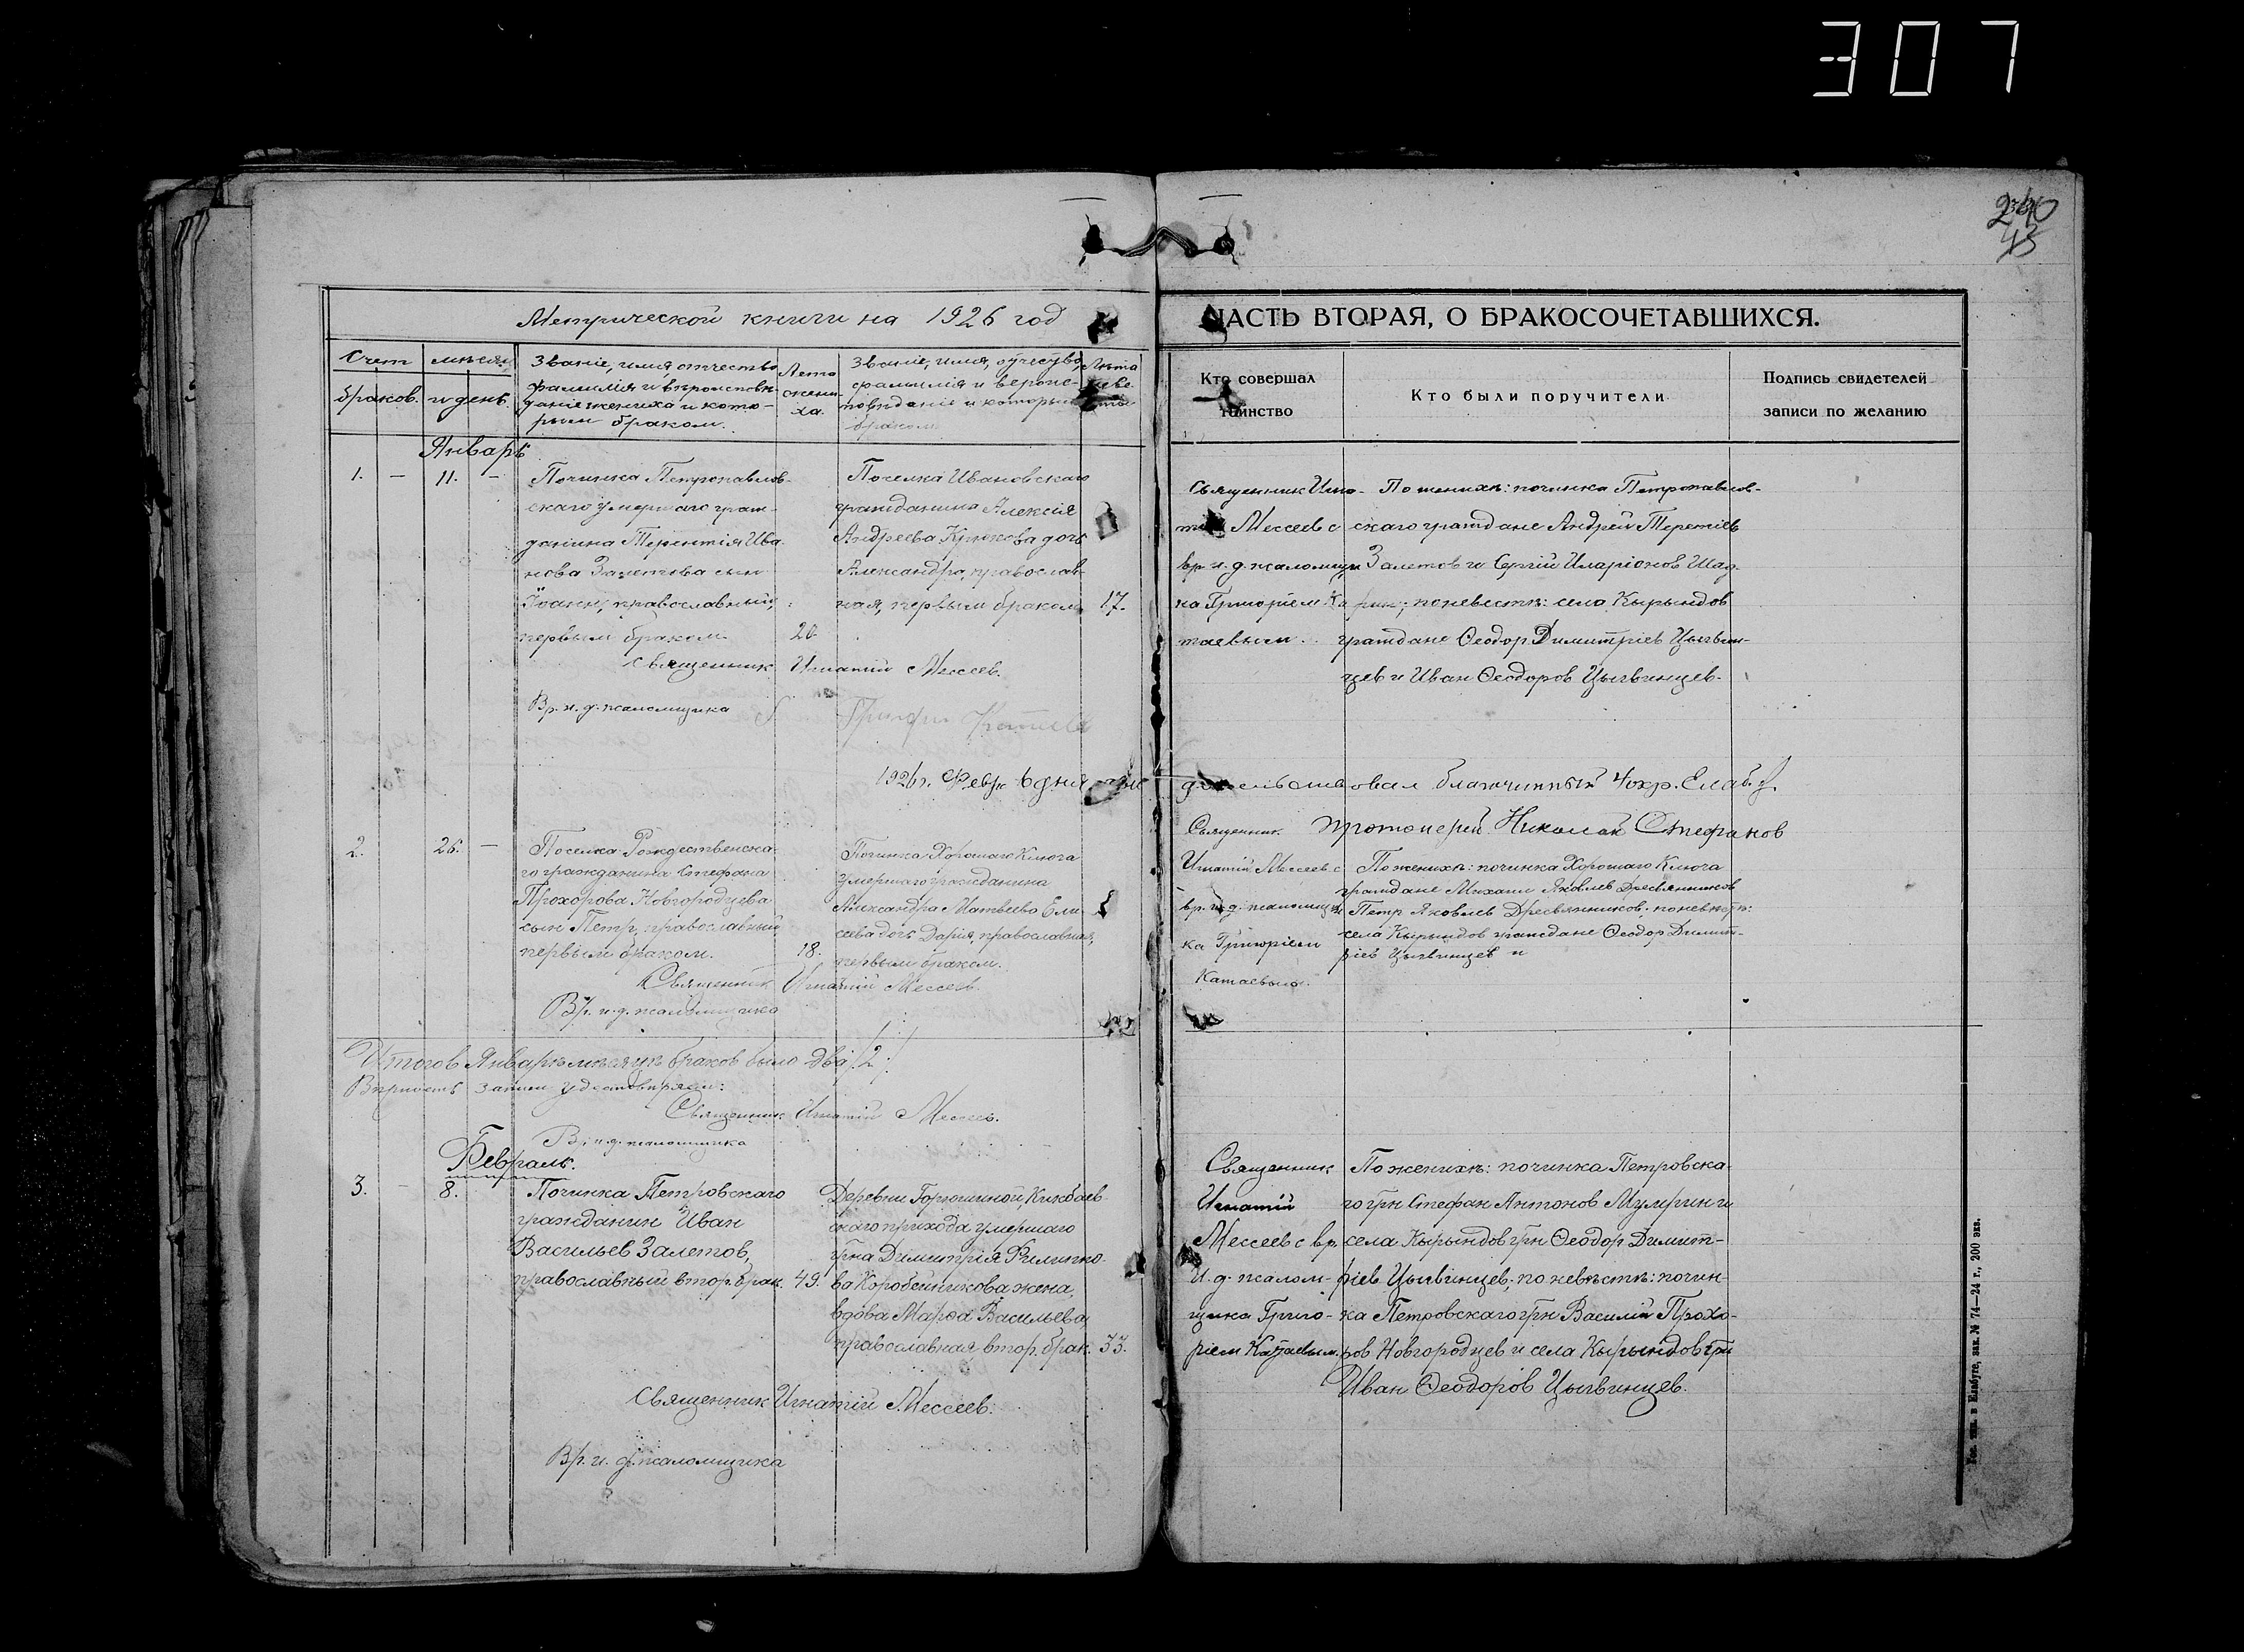 307
240
43
Метрической книги на 1926 год
ЧАСТЬ ВТОРАЯ, О БРАКОСОЧЕТАВШИХСЯ.
Счет
браков.
и день
Званіе, имя, отчество
фамилія и вѣроисповѣ-
даніе жениха и кото-
рым браком.
Лета
жени
ха.
Званіе, имя, отчество,
фамилия и вероис-
поведаніе и которым
браком
Лѣта
Кто совершал
таинство
Кто были поручители
Подпись свидетелей
записи по желанию
Январь
1. — 11. —
Починка Петропавлов-
скаго умершаго граж-
данина Терентія Ива-
нова Залетова сын
Іоанн, православный,
первым браком.
20
Поселка Ивановскаго
гражданина Алексія
Андреева Крюкова дочь
Александра, православ-
ная, первым браком
17.
Священник Игнатій Мессеев.
Вр. и. д. псаломщика
Священник Игна-
тій Мессеев с
вр. и. д. псаломщи
ка Григоріем Ка
таевым.
По женихѣ: починка Петропавлов-
скаго граждане Андрей Терентіев
Залетов и Сергій Иларіонов Шад-
рин; по невестѣ: села Кырындов
граждане Ѳеодор Димитріев Цыгвин-
цев и Иван Ѳеодоров Цыгвинцев.
1926 г. Февр. 6 дня
благочинный 4 окр. Елаб. у.
протоиерей Николай Стефанов
2. 26. —
Поселка Рождественска-
го гражданина Стефана
Прохорова Новгородцева
сын Петр, православный,
первым браком.
18.
Починка Хорошаго Ключа
умершаго гражданина
Александра Матвеева Ели-
сеева дочь Дарія, православная,
первым браком.
Священник Игнатій Мессеев.
Вр. и. д. псаломщика
Священник
Игнатій Мессеев с
вр. и. д. псаломщи
ка Григоріем
Катаевым.
По женихѣ: починка Хорошаго Ключа
граждане Михаил Яковлев Дресвянников
Петр Яковлев Дресвянников; по невѣстѣ:
села Кырындов граждане Ѳеодор Димит-
ріев Цыгвинцев и
Итого в Январѣ мѣсяцѣ браков было два /2/.
Вѣрность записи удостовѣряем:
Священник Игнатій Мессеев.
Вр. и. д. псаломщика
Февраль.
3. — 8.
Починка Петровскаго
гражданин Иван
Васильев Залетов,
православный втор. брак.
49.
Деревни Горюшиной, Кикбаев-
скаго прихода умершаго
гр-на Димитрія Филиппо-
ва Коробейникова жена,
вдова Марѳа Васильева
православная втор. брак.
33.
Священник Игнатій Мессеев.
Вр. и. д. псаломщика
Священник
Игнатій
Мессеев с вр
и. д. псалом-
щика Григо-
ріем Катаевым.
По женихѣ: починка Петровска-
го гр-н Стефан Антонов Мумрин и
села Кырындов гр-н Ѳеодор Димит-
ріев Цыгвинцев; по невѣстѣ: почин-
ка Петровскаго гр-н Василій Прохо-
ров Новгородцев и села Кырындов гр-н
Иван Ѳеодоров Цыгвинцев.
Гос. тип. в Елабуге, зак. № 74—24 г., 200 экз.